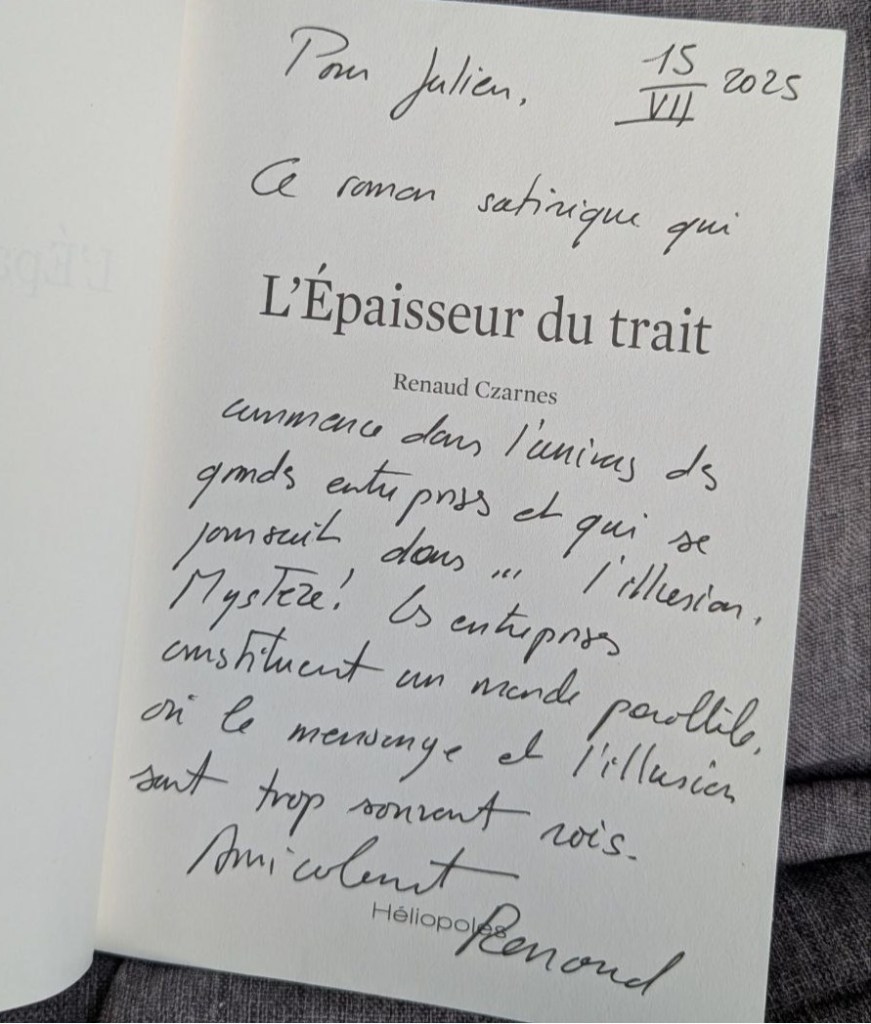 Pour Julien,
15
VII
2025
Ce roman satirique qui
L'Épaisseur du trait
Renaud Czarnes
commence dans l'univers des
grands entreprises et qui se
poursuit dans ... l'illusion.
Mystère! Les entreprises
constituent un monde parallèle,
où le mensonge et l'illusion
sont trop souvent rois.
Amicalement
Héliopoles
Renaud